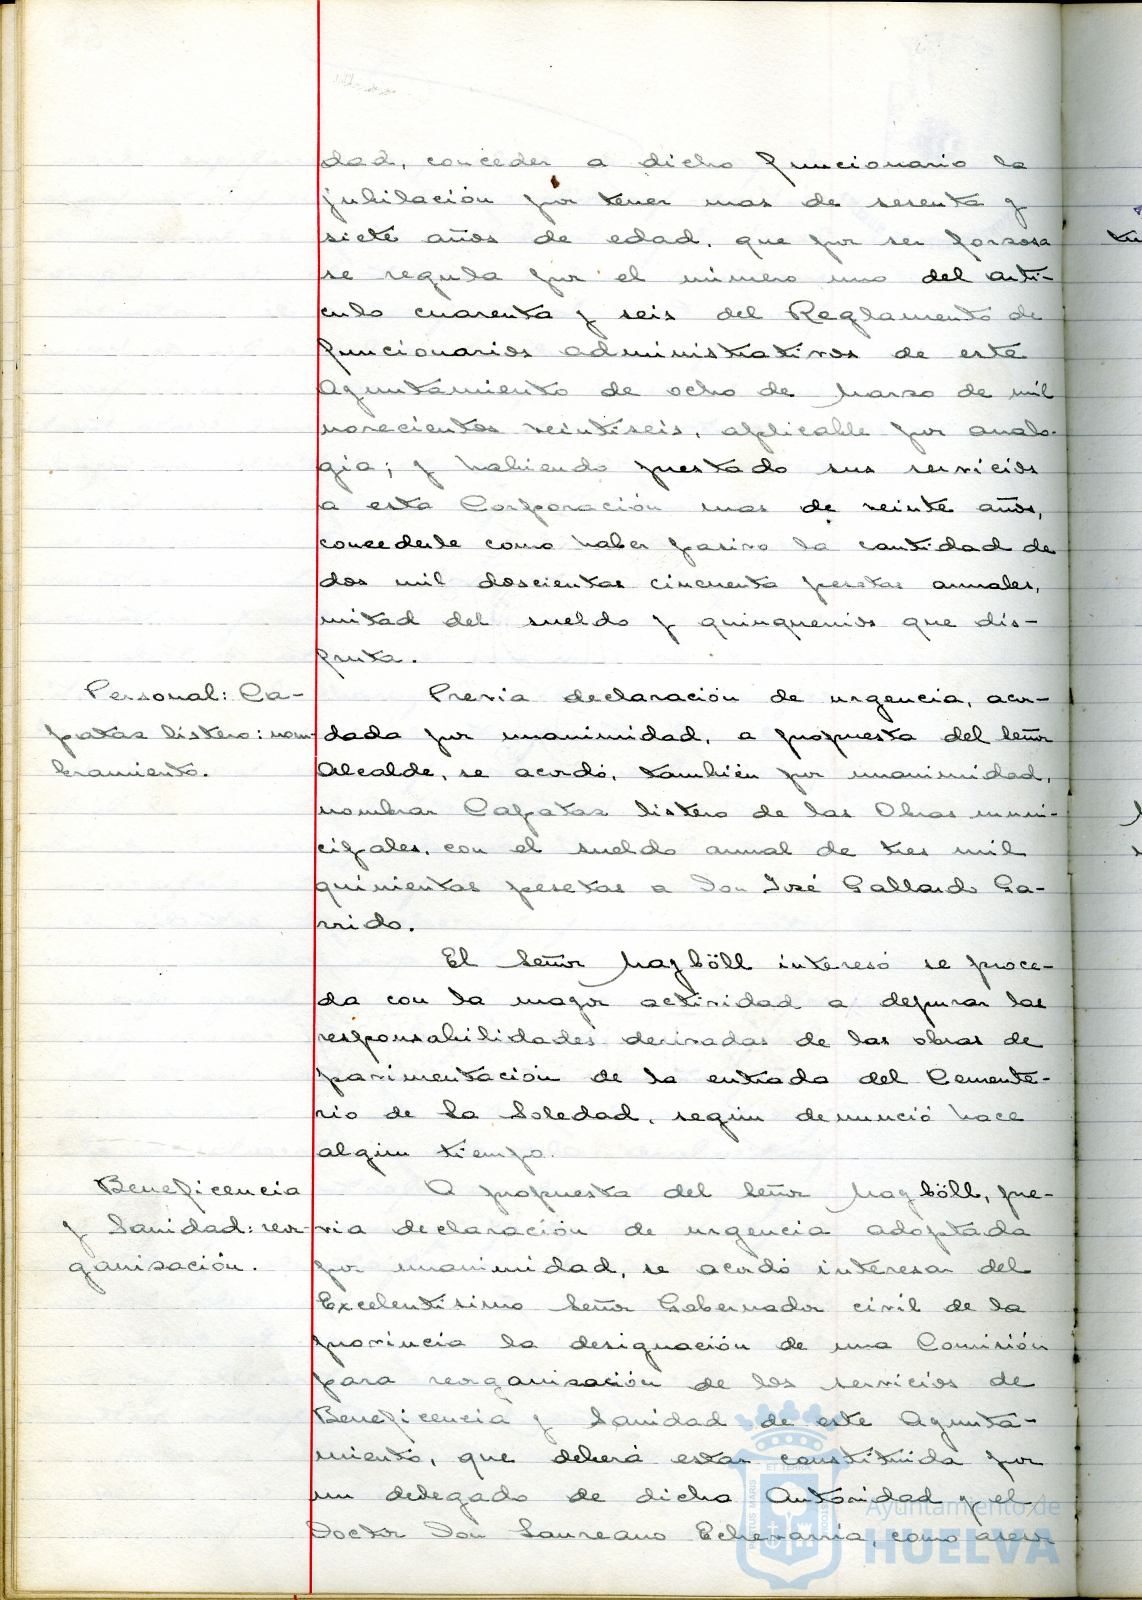 dad, conceder a dicho funcionario la
jubilación por tener mas de sesenta y
siete años de edad, que por ser forzosa
se regula por el número uno del artí-
culo cuarenta y seis del Reglamento de
funcionarios administrativos de este
Ayuntamiento de ocho de Marzo de mil
novecientos veintiseis, aplicable por analo-
gia; y habiendo prestado sus servicios
a esta Corporación mas de veinte años,
concederle como haber pasivo la cantidad de
dos mil doscientas cincuenta pesetas anuales,
mitad del sueldo y quinquenios que dis-
fruta.
Personal: Ca-
pataz listero: nom-
bramiento.
Previa declaración de urgencia, acor-
dada por unanimidad, a propuesta del Señor
Alcalde, se acordó, también por unanimidad,
nombrar Capataz listero de las Obras muni-
cipales, con el sueldo anual de tres mil
quinientas pesetas a Don José Gallardo Ga-
rrido.
El Señor Mayböll interesó se proce-
da con la mayor actividad a depurar las
responsabilidades derivadas de las obras de
pavimentación de la entrada del Cemente-
rio de la Soledad, según denunció hace
algún tiempo.
Beneficencia
y Sanidad: reor-
ganización.
A propuesta del Señor Mayböll, pre-
via declaración de urgencia adoptada
por unanimidad, se acordó interesar del
Excelentísimo Señor Gobernador civil de la
provincia la designación de una Comisión
para reorganización de los servicios de
Beneficencia y Sanidad de este Ayunta-
miento, que deberá estar constituida por
un delegado de dicha Autoridad y el
Doctor Don Laureano Echevarria, como asesor
Ayuntamiento de
HUELVA